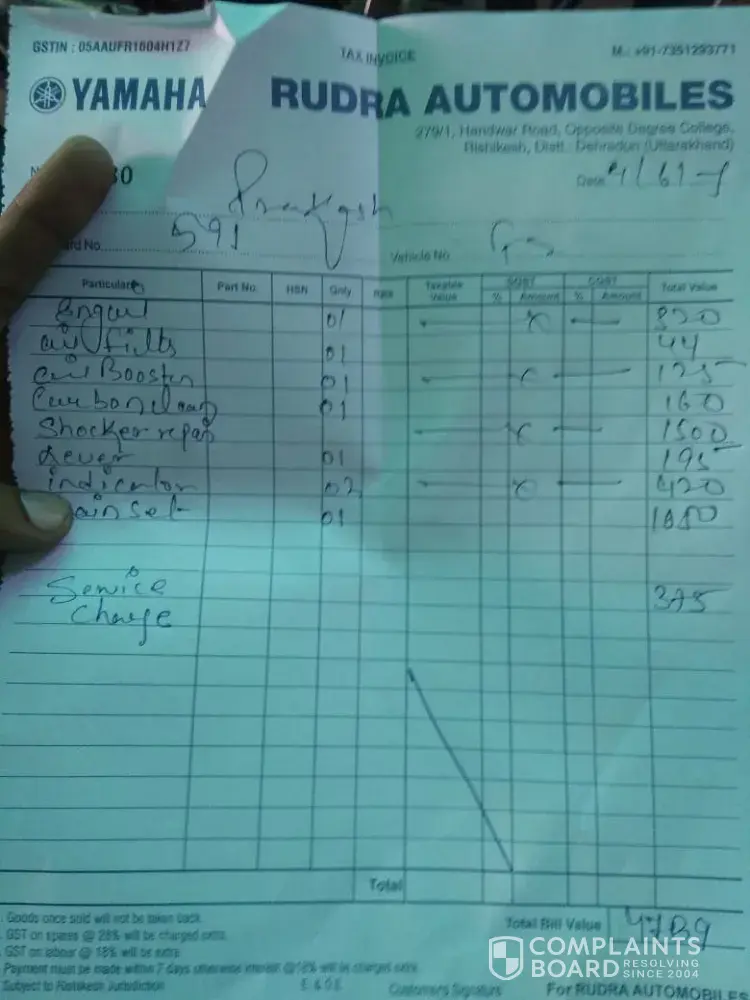 GSTIN : 05AAUFR1604H1Z7 TAX INVOICE M.: +91-7351293771
YAMAHA RUDRA AUTOMOBILES
279/1, Haridwar Road, Opposite Degree College,
Rishikesh, Distt.: Dehradun (Uttarakhand)
30 Date
Prakash
No. 591 Vehicle No.
Particulars Part No. HSN Qnty. Rate Taxable Value SGST % Amount CGST % Amount Total Value
01 320
air filts 01 44
air Booster 01 125
Carbon clean 01 160
Shocker repair 1500
Lever 01 195
indicator 02 420
ain Set 01
Service 375
Charge
Total
Goods once sold will not be taken back.
GST on spares @ 28% will be charged extra.
GST on labour @ 18% will be extra
Payment must be made within 7 days otherwise interest @18% will be charged extra
Subject to Rishikesh Jurisdiction E. & O.E. Customer's Signature For RUDRA AUTOMOBILES
Total Bill Value
COMPLAINTS
BOARD RESOLVING SINCE 2004